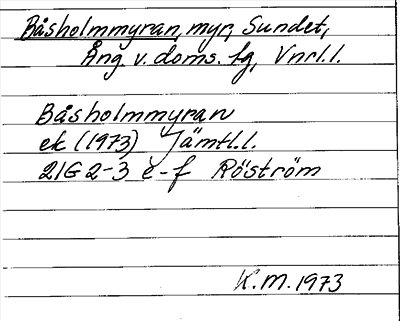 Båsholmmyran, myr, Sundet,
Ång. v. doms. fg, Vnrl.l.
Båsholmmyran
ek (1973) Jämtl.l.
21G 2-3 e-f Röström
K.M. 1973